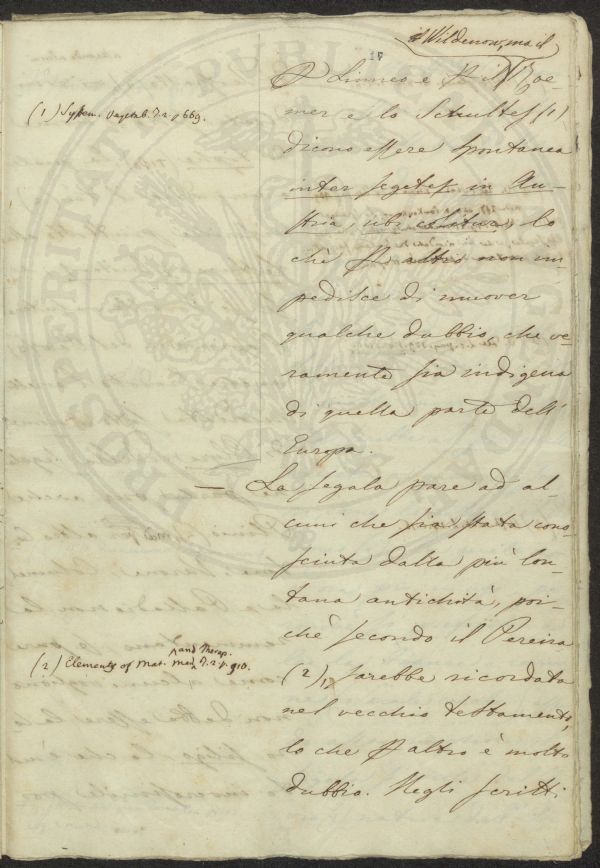 17
il Wildenow, ma il
Linneo e il Roe-
mer e lo Schultes (1)
dicono essere spontanea
inter segetes in Au-
stria, ubi colitur, lo
chè altro non im-
pedisce di muover
qualche dubbio, che ve-
ramente sia indigena
di quella parte dell'
Europa.
— La segala pare ad al-
cuni che sia stata cono-
sciuta dalla più lon-
tana antichità, poi-
chè secondo il Pereira
(2), sarebbe ricordata
nel vecchio testamento,
lo che altro è molto
dubbio. Negli scritti
(1) System. Vegetab. T. 2. p 669.
and Therap.
(2) Elements of Mat. Med. T. 2. p. 910.